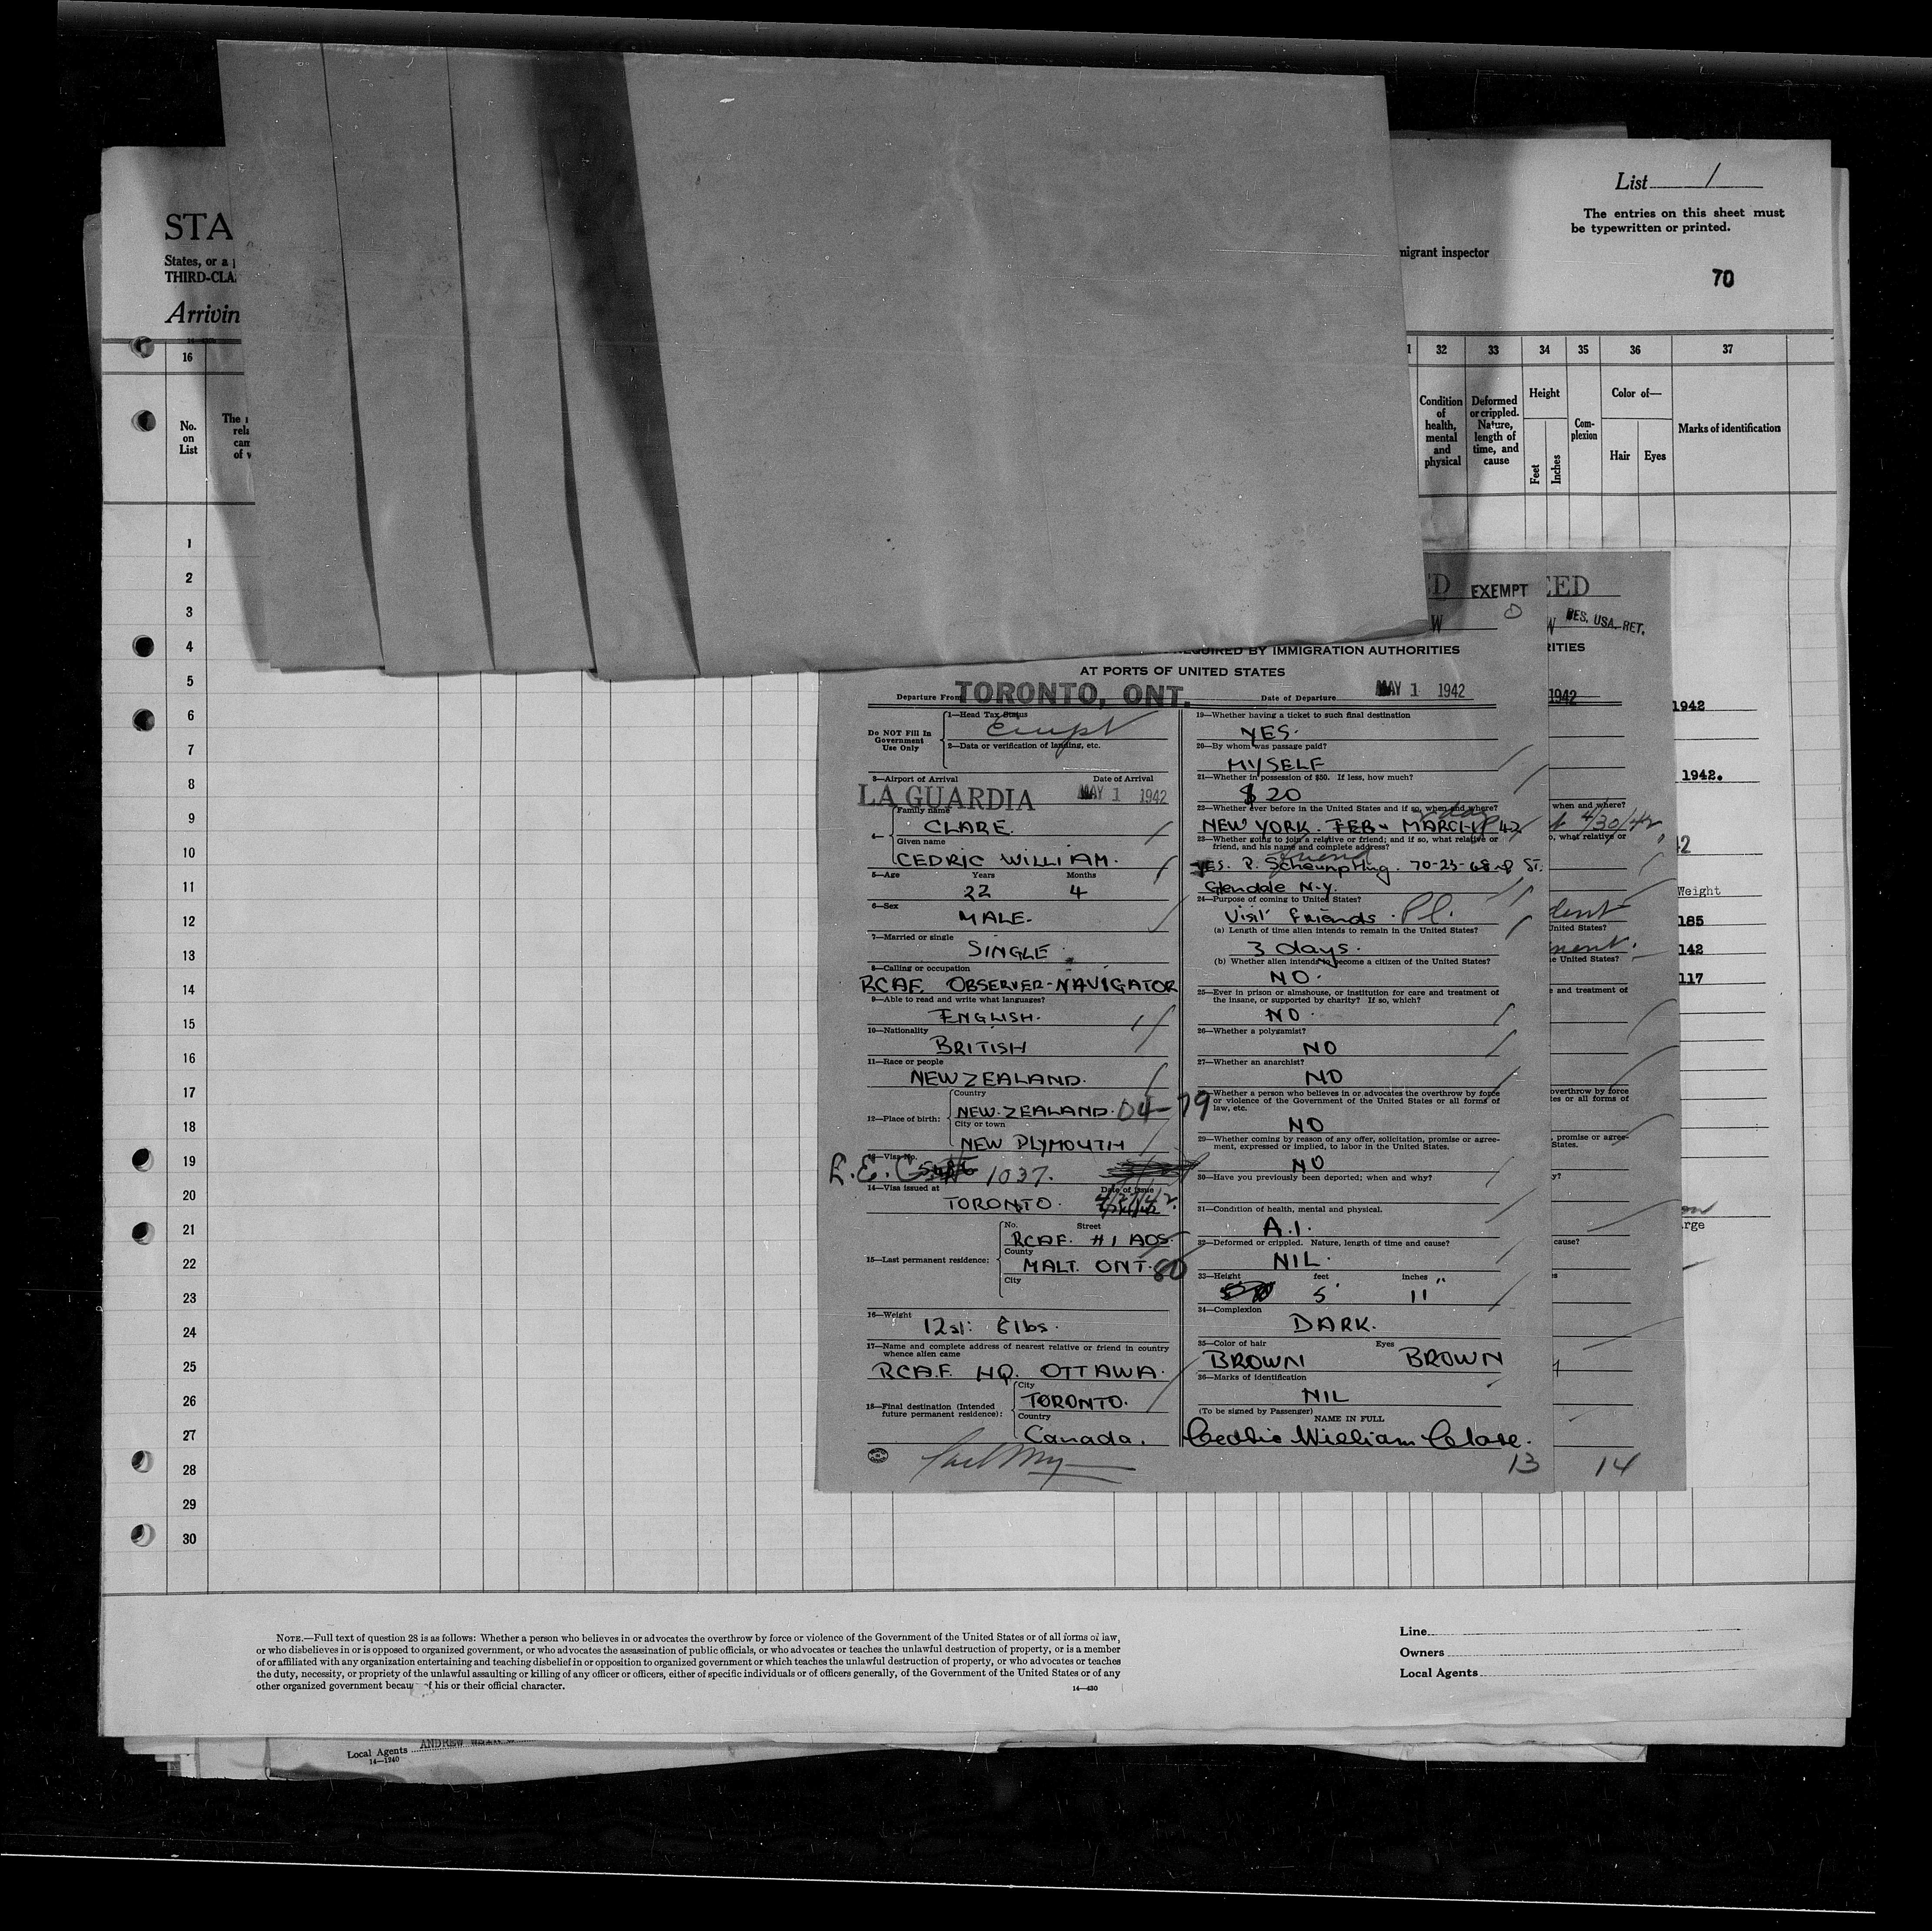 List 1
The entries on this sheet must
be typewritten or printed.
70
STA
States, or a
THIRD-CLA
Arrivin
migrant inspector
16
32 33 34 35 36 37
No.
on
List
Condition
of
health,
mental
and
physical
Deformed
or crippled.
Nature,
length of
time, and
cause
Height
Feet
Inches
Com-
plexion
Color of—
Hair Eyes
Marks of identification
1
2
3
4
5
6
7
8
9
10
11
12
13
14
15
16
17
18
19
20
21
22
23
24
25
26
27
28
29
30
ED EXEMPT
W
REQUIRED BY IMMIGRATION AUTHORITIES
AT PORTS OF UNITED STATES
Departure From TORONTO, ONT. Date of Departure MAY 1 1942
Do NOT Fill In
Government
Use Only
1—Head Tax Status
2—Data or verification of landing, etc.
3—Airport of Arrival Date of Arrival
LA GUARDIA MAY 1 1942
4— Family name
CLARE.
Given name
CEDRIC WILLIAM.
5—Age Years Months
22 4
6—Sex
MALE.
7—Married or single
SINGLE
8—Calling or occupation
RCAF. OBSERVER-NAVIGATOR
9—Able to read and write what languages?
ENGLISH.
10—Nationality
BRITISH
11—Race or people
NEW ZEALAND.
12—Place of birth: Country
NEW ZEALAND. 04-79
City or town
NEW PLYMOUTH
13—Visa No.
1037.
14—Visa issued at Date of Issue
TORONTO.
15—Last permanent residence: No. Street
RCAF. #1 AOS.
County
MALT. ONT. 80
City
16—Weight
12st: 8lbs.
17—Name and complete address of nearest relative or friend in country
whence alien came
RCAF. HQ. OTTAWA.
18—Final destination (Intended
future permanent residence):
City
TORONTO.
Country
Canada.
19—Whether having a ticket to such final destination
YES.
20—By whom was passage paid?
MYSELF
21—Whether in possession of $50. If less, how much?
$20
22—Whether ever before in the United States and if so, when and where?
NEW YORK. FEB MARCH 42
23—Whether going to join a relative or friend; and if so, what relative or
friend, and his name and complete address?
YES. P. 70-23-68 ST.
Glendale N.Y.
24—Purpose of coming to United States?
Visit Friends. Pl.
(a) Length of time alien intends to remain in the United States?
3 days.
(b) Whether alien intends to become a citizen of the United States?
NO.
25—Ever in prison or almshouse, or institution for care and treatment of
the insane, or supported by charity? If so, which?
NO.
26—Whether a polygamist?
NO
27—Whether an anarchist?
NO
28—Whether a person who believes in or advocates the overthrow by force
or violence of the Government of the United States or all forms of
law, etc.
NO
29—Whether coming by reason of any offer, solicitation, promise or agree-
ment, expressed or implied, to labor in the United States.
NO
30—Have you previously been deported; when and why?
31—Condition of health, mental and physical.
A.1.
32—Deformed or crippled. Nature, length of time and cause?
NIL.
33—Height feet inches
5' 11"
34—Complexion
DARK.
35—Color of hair Eyes
BROWN BROWN
36—Marks of identification
NIL
(To be signed by Passenger)
NAME IN FULL
Cedric William Clare.
13 14
EED
W RES. USA. RET.
RITIES
1942
when and where?
4/30/42
o, what relative or
United States?
e United States?
e and treatment of
overthrow by force
tes or all forms of
, promise or agree-
States.
y?
cause?
1942
1942.
42
Weight
185
142
117
NOTE.—Full text of question 28 is as follows: Whether a person who believes in or advocates the overthrow by force or violence of the Government of the United States or of all forms of law,
or who disbelieves in or is opposed to organized government, or who advocates the assassination of public officials, or who advocates or teaches the unlawful destruction of property, or is a member
of or affiliated with any organization entertaining and teaching disbelief in or opposition to organized government or which teaches the unlawful destruction of property, or who advocates or teaches
the duty, necessity, or propriety of the unlawful assaulting or killing of any officer or officers, either of specific individuals or of officers generally, of the Government of the United States or of any
other organized government becau of his or their official character.
14—430
Line
Owners
Local Agents
Local Agents ANDREW
14—1240